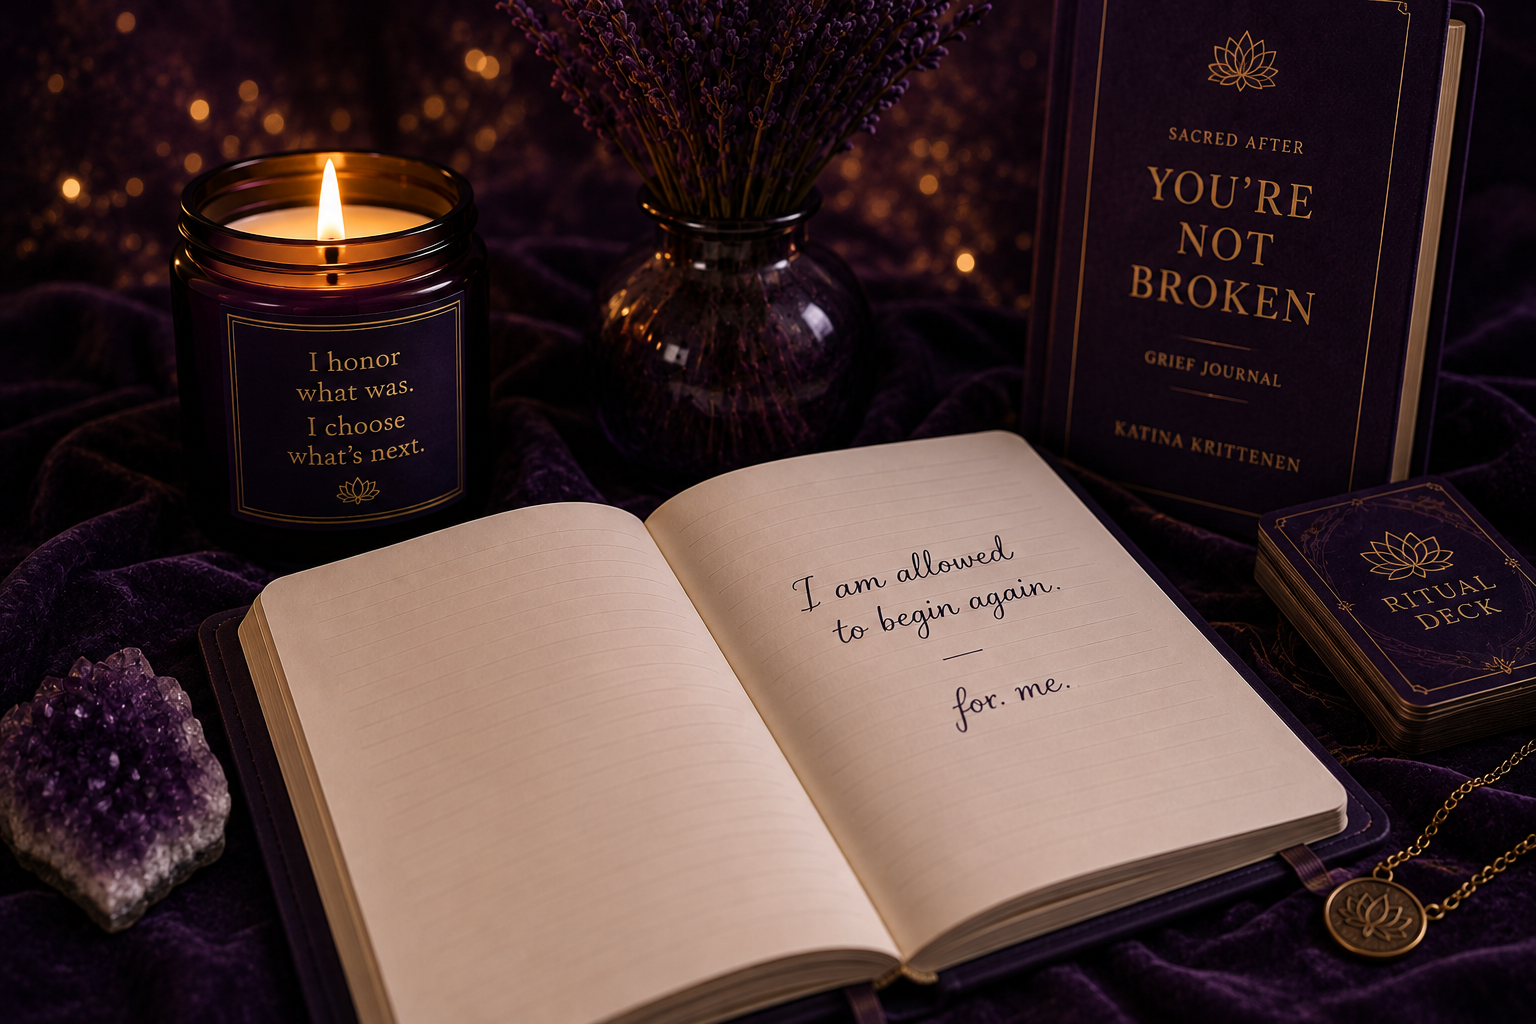 I honor
what was.
I choose
what's next.
SACRED AFTER
YOU'RE
NOT
BROKEN
GRIEF JOURNAL
KATINA KRITTENEN
I am allowed
to begin again.
—
for. me.
RITUAL
DECK